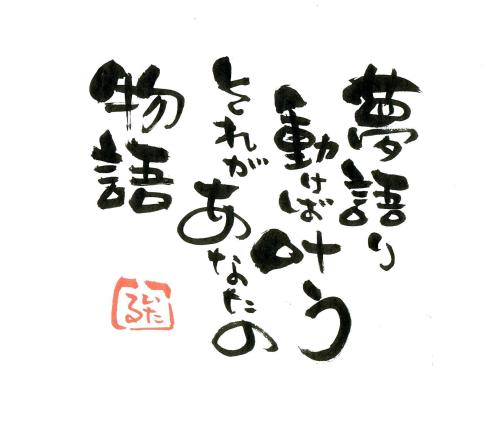 夢語り
動けば叶う
それがあなたの
物語
いたる